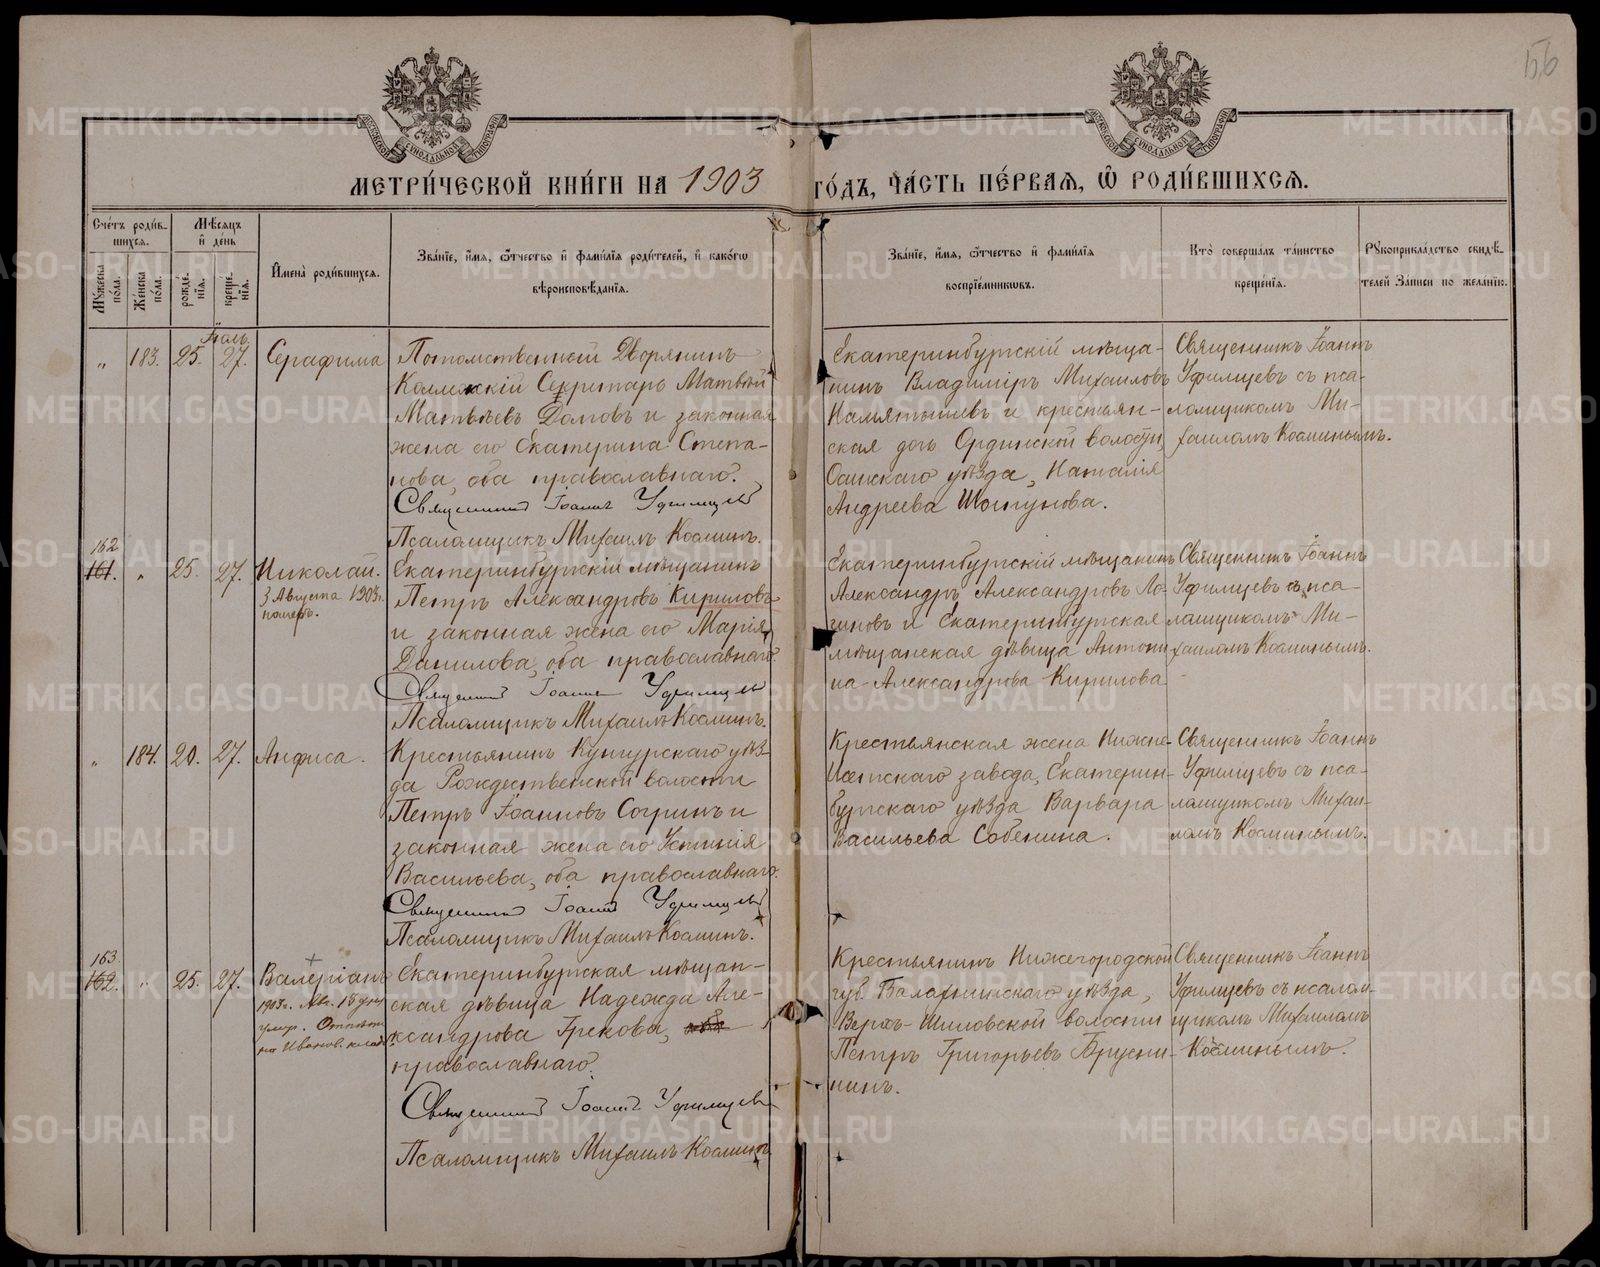 56
МОСКОВСКОЙ СѴНОДАЛЬНОЙ ТИПОГРАФІИ
МОСКОВСКОЙ СѴНОДАЛЬНОЙ ТИПОГРАФІИ
МЕТРИ́ЧЕСКОЙ КНИ́ГИ НА 1903 ГО́ДЪ, ЧА́СТЬ ПЕ́РВАЯ, Ѽ РОДИ́ВШИХСЯ.
Сче́тъ роди́в-
шихся.
Мѣ́сяцъ
и҆ де́нь
Мꙋжеска по́ла.
Же́нска по́ла.
рожде́нїѧ.
креще́нїѧ.
И҆мена̀ роди́вшихся.
Зва́нїе, и҆́мѧ, ѻ҆́тчество и҆ фами́лїѧ роди́телей, и҆ како́гѡ
вѣроисповѣ́данїѧ.
Зва́нїе, и҆́мѧ, ѻ҆́тчество и҆ фами́лїѧ
воспрїе́мникѡвъ.
Кто̀ соверша́лъ та́инство
креще́нїѧ.
Рꙋкоприкла́дство свидѣ́-
телей за́писи по жела́нїю.
Іюль.
„ 183. 25. 27. Серафима
Потомственный Дворянинъ
Коллежскій Секретарь Матвѣй
Матвѣевъ Домовъ и законная
жена его Екатерина Степа-
нова, оба православнаго.
Священникъ Іоаннъ Уфимцевъ
Псаломщикъ Михаилъ Косминъ.
Екатеринбургскій мѣща-
нинъ Владиміръ Михаиловъ
Намятышевъ и крестьян-
ская дочь Ординской волости,
Осинскаго уѣзда, Наталія
Андреева Шестунова.
Священникъ Іоаннъ
Уфимцевъ съ пса-
ломщикомъ Ми-
хаиломъ Косминымъ.
162
161. „ 25. 27. Николай.
3 Августа 1903г.
померъ.
Екатеринбургскій мѣщанинъ
Петръ Александровъ Кириловъ
и законная жена его Марія
Данилова, оба православнаго.
Священникъ Іоаннъ Уфимцевъ
Псаломщикъ Михаилъ Косминъ.
Екатеринбургскій мѣщанинъ
Александръ Александровъ Ло-
гиновъ и Екатеринбургская
мѣщанская дѣвица Антони-
на Александрова Кирилова
Священникъ Іоаннъ
Уфимцевъ съ пса-
ломщикомъ Ми-
хаиломъ Косминымъ.
„ 184. 20. 27. Анфиса.
Крестьянинъ Кунгурскаго уѣз-
да Рождественской волости
Петръ Іоанновъ Согринъ и
законная жена его Устинія
Васильева, оба православнаго.
Священникъ Іоаннъ Уфимцевъ
Псаломщикъ Михаилъ Косминъ.
Крестьянская жена Нижне-
Исетскаго завода, Екатерин-
бургскаго уѣзда Варвара
Васильева Собенина.
Священникъ Іоаннъ
Уфимцевъ съ пса-
ломщикомъ Михаи-
ломъ Косминымъ.
163
162. „ 25. 27. Валеріанъ
1903г. Авг. 18 дня
умеръ. Отпѣтъ
на Иванов. клад.
Екатеринбургская мѣщан-
ская дѣвица Надежда Але-
ксандрова Грекова, оба
православнаго.
Священникъ Іоаннъ Уфимцевъ
Псаломщикъ Михаилъ Косминъ
Крестьянинъ Нижегородской
губ. Балахнинскаго уѣзда,
Верхъ-Шиловской волости
Петръ Григорьевъ Брусни-
нинъ.
Священникъ Іоаннъ
Уфимцевъ съ псалом-
щикомъ Михаиломъ
Косминымъ.
METRIKI.GASO-URAL.RU